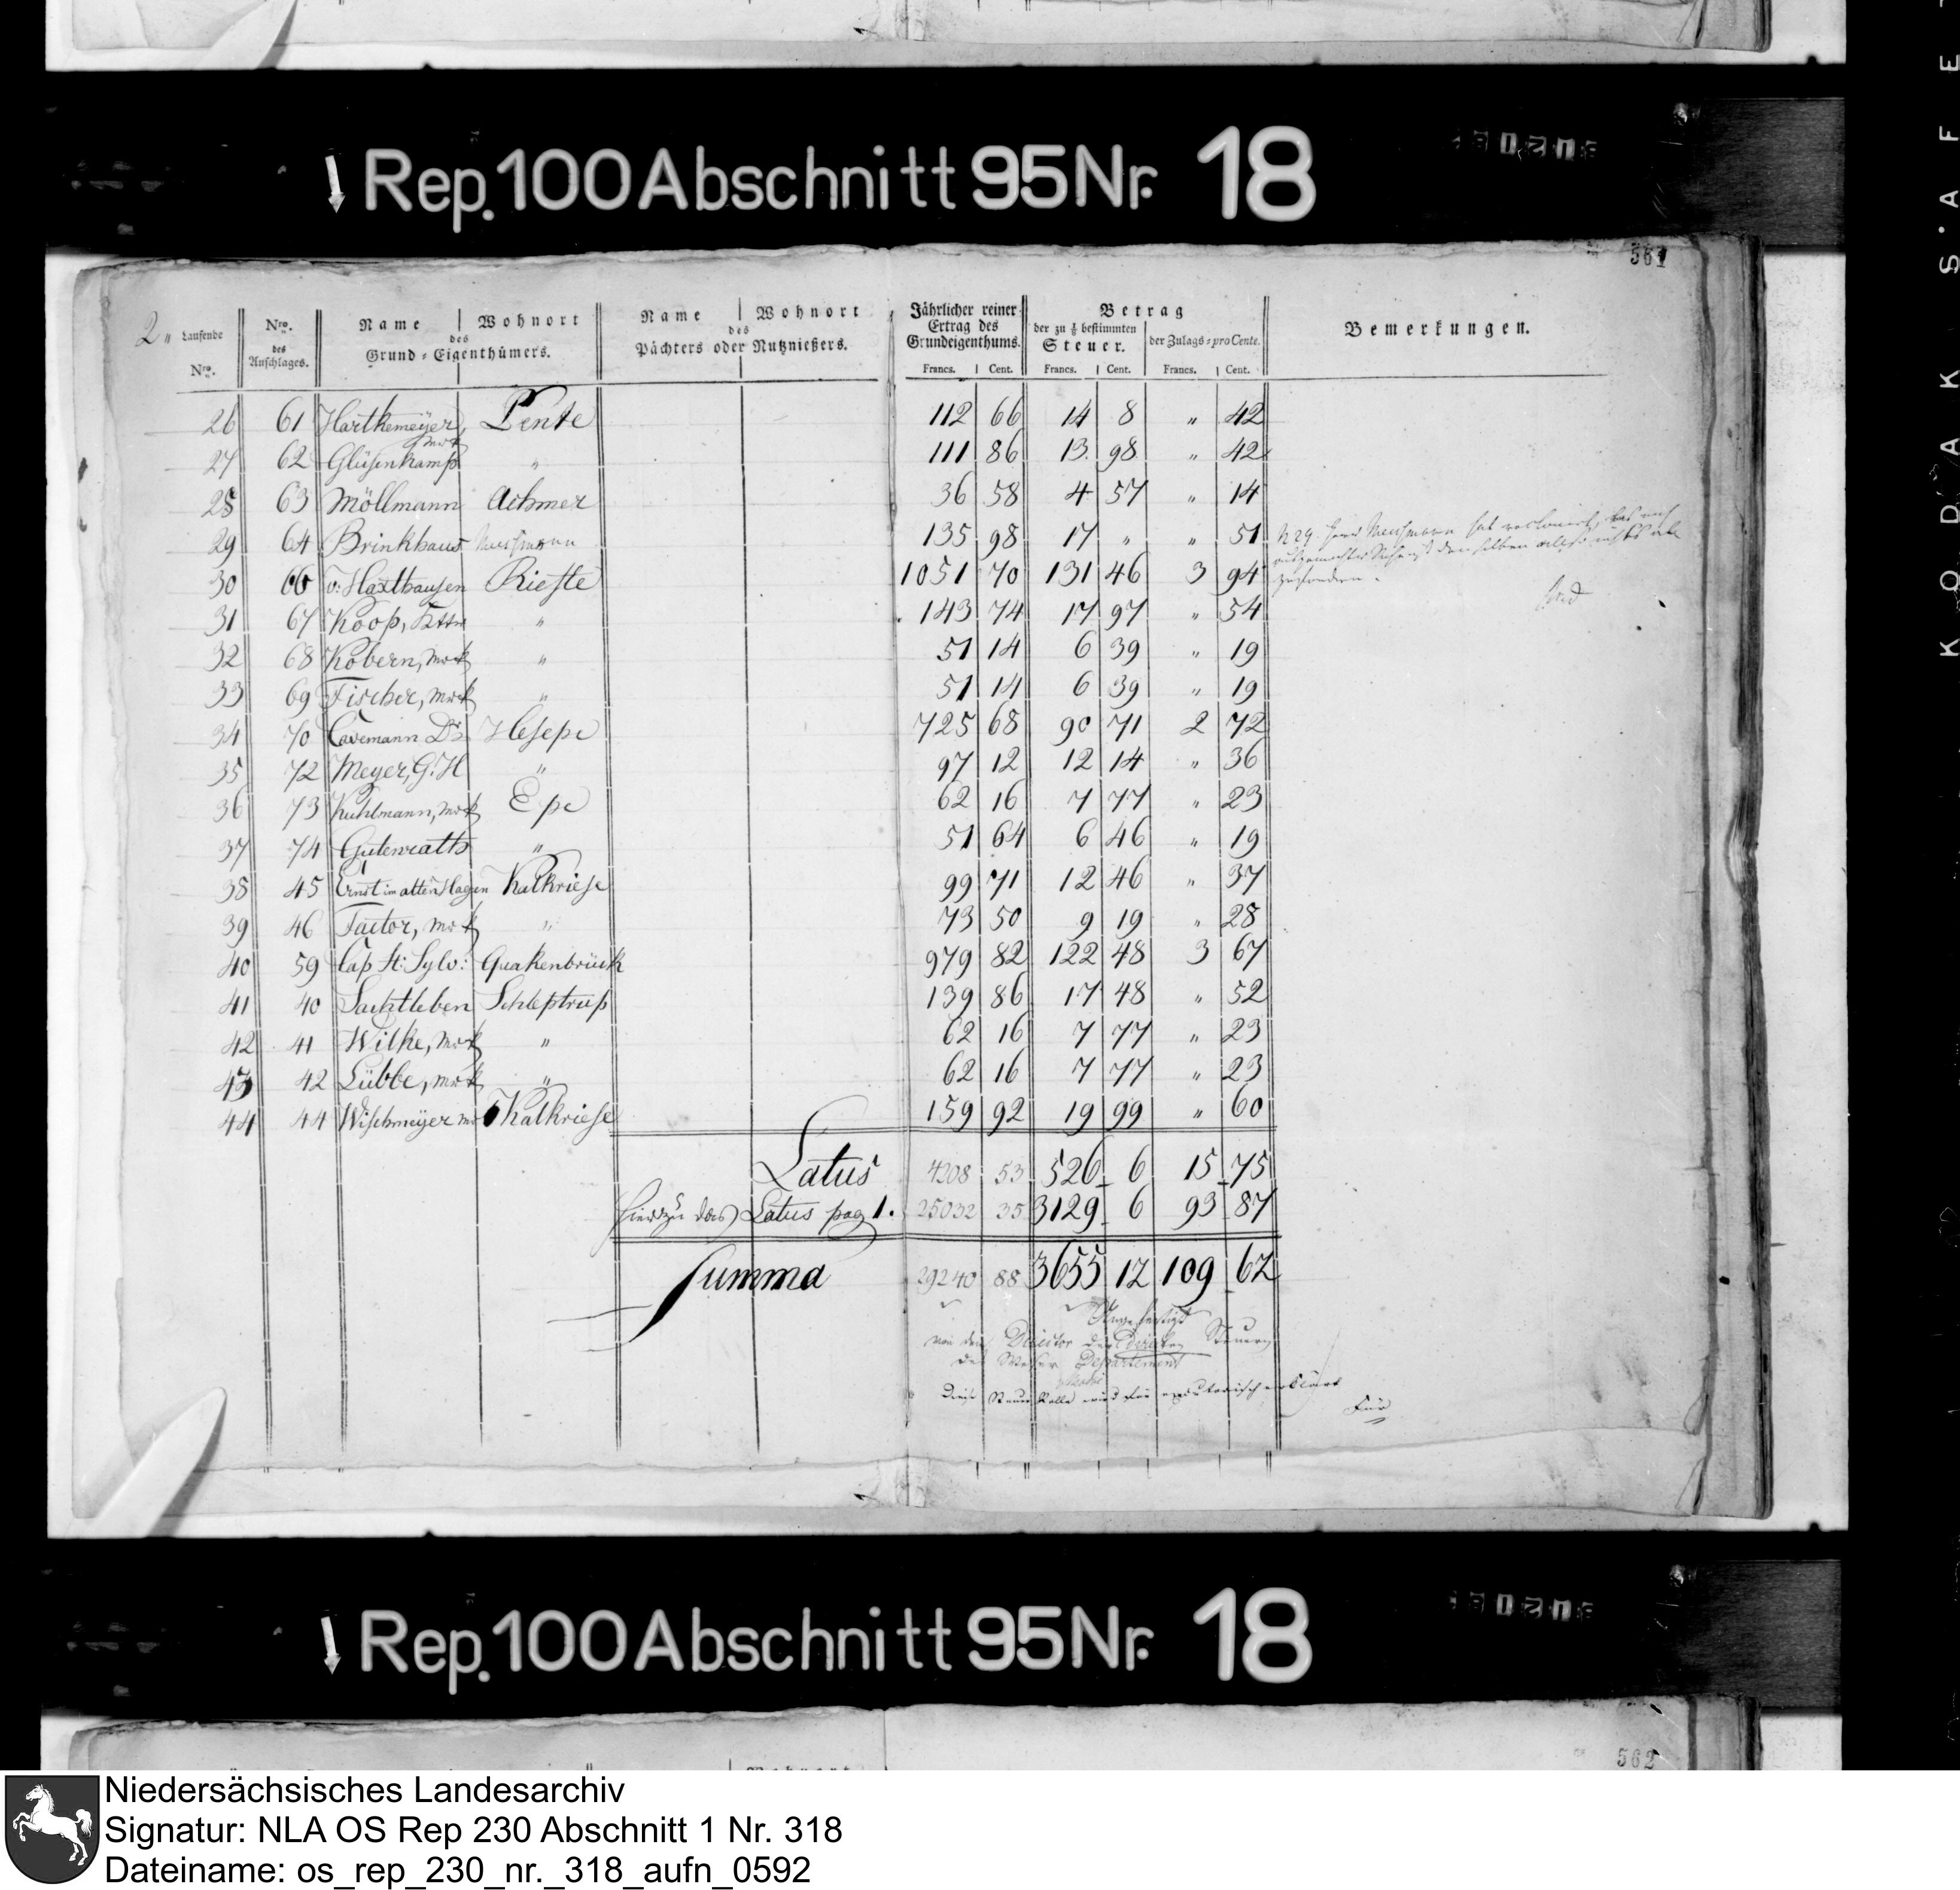 ↓ Rep. 100 Abschnitt 95 Nr. 18
561
2 „
Laufende Nro.
Nro. des Anschlages.
Name | Wohnort
des
Grund-Eigenthümers.
Name | Wohnort
des
Pächters oder Nutznießers.
Jährlicher reiner Ertrag des Grundeigenthums.
Francs. | Cent.
Betrag
der zu ⅛ bestimmten Steuer.
Francs. | Cent.
der Zulags-pro Cente.
Francs. | Cent.
Bemerkungen.
26 61 Hartkemeyer, mrk Pente 112 66 14 8 „ 42
27 62 Glüsenkamp „ 111 86 13 98 „ 42
28 63 Möllmann Achmer 36 58 4 57 „ 14
29 64 Brinkhaus 135 98 17 „ „ 51
30 66 v: Haxthausen Rieste 1051 70 131 46 3 94
31 67 Koop, „ 143 74 17 97 „ 54
32 68 Kobern, mrk „ 51 14 6 39 „ 19
33 69 Fischer, mrk „ 51 14 6 39 „ 19
34 70 Cavemann Dr. Hesepe 725 68 90 71 2 72
35 72 Meyer, G. H „ 97 12 12 14 „ 36
36 73 Kuhlmann, mrk Epe 62 16 7 77 „ 23
37 74 Gutenraths „ 51 64 6 46 „ 19
38 45 Ernst im alten Hagen Kalkriese 99 71 12 46 „ 37
39 46 Factor, mrk „ 73 50 9 19 „ 28
40 59 Cap St: Sylv: Quakenbrück 979 82 122 48 3 67
41 40 Sachtleben Schleptrup 139 86 17 48 „ 52
42 41 Wilke, mrk „ 62 16 7 77 „ 23
43 42 Lübbe, mrk „ 62 16 7 77 „ 23
44 44 Wischmeyer Kalkriese 159 92 19 99 „ 60
Latus 4208 53 526 6 15 75
hierzu das Latus pag 1. 25032 35 3129 6 93 87
Summa 29240 88 3655 12 109 62
Angefertigt
von dem Director der Directen Steuern
des Weser Departement
Diese Steuer Rolle wird für executorisch erklärt
Für
↓ Rep. 100 Abschnitt 95 Nr. 18
562
Niedersächsisches Landesarchiv
Signatur: NLA OS Rep 230 Abschnitt 1 Nr. 318
Dateiname: os_rep_230_nr._318_aufn_0592
KODAK S'AFET